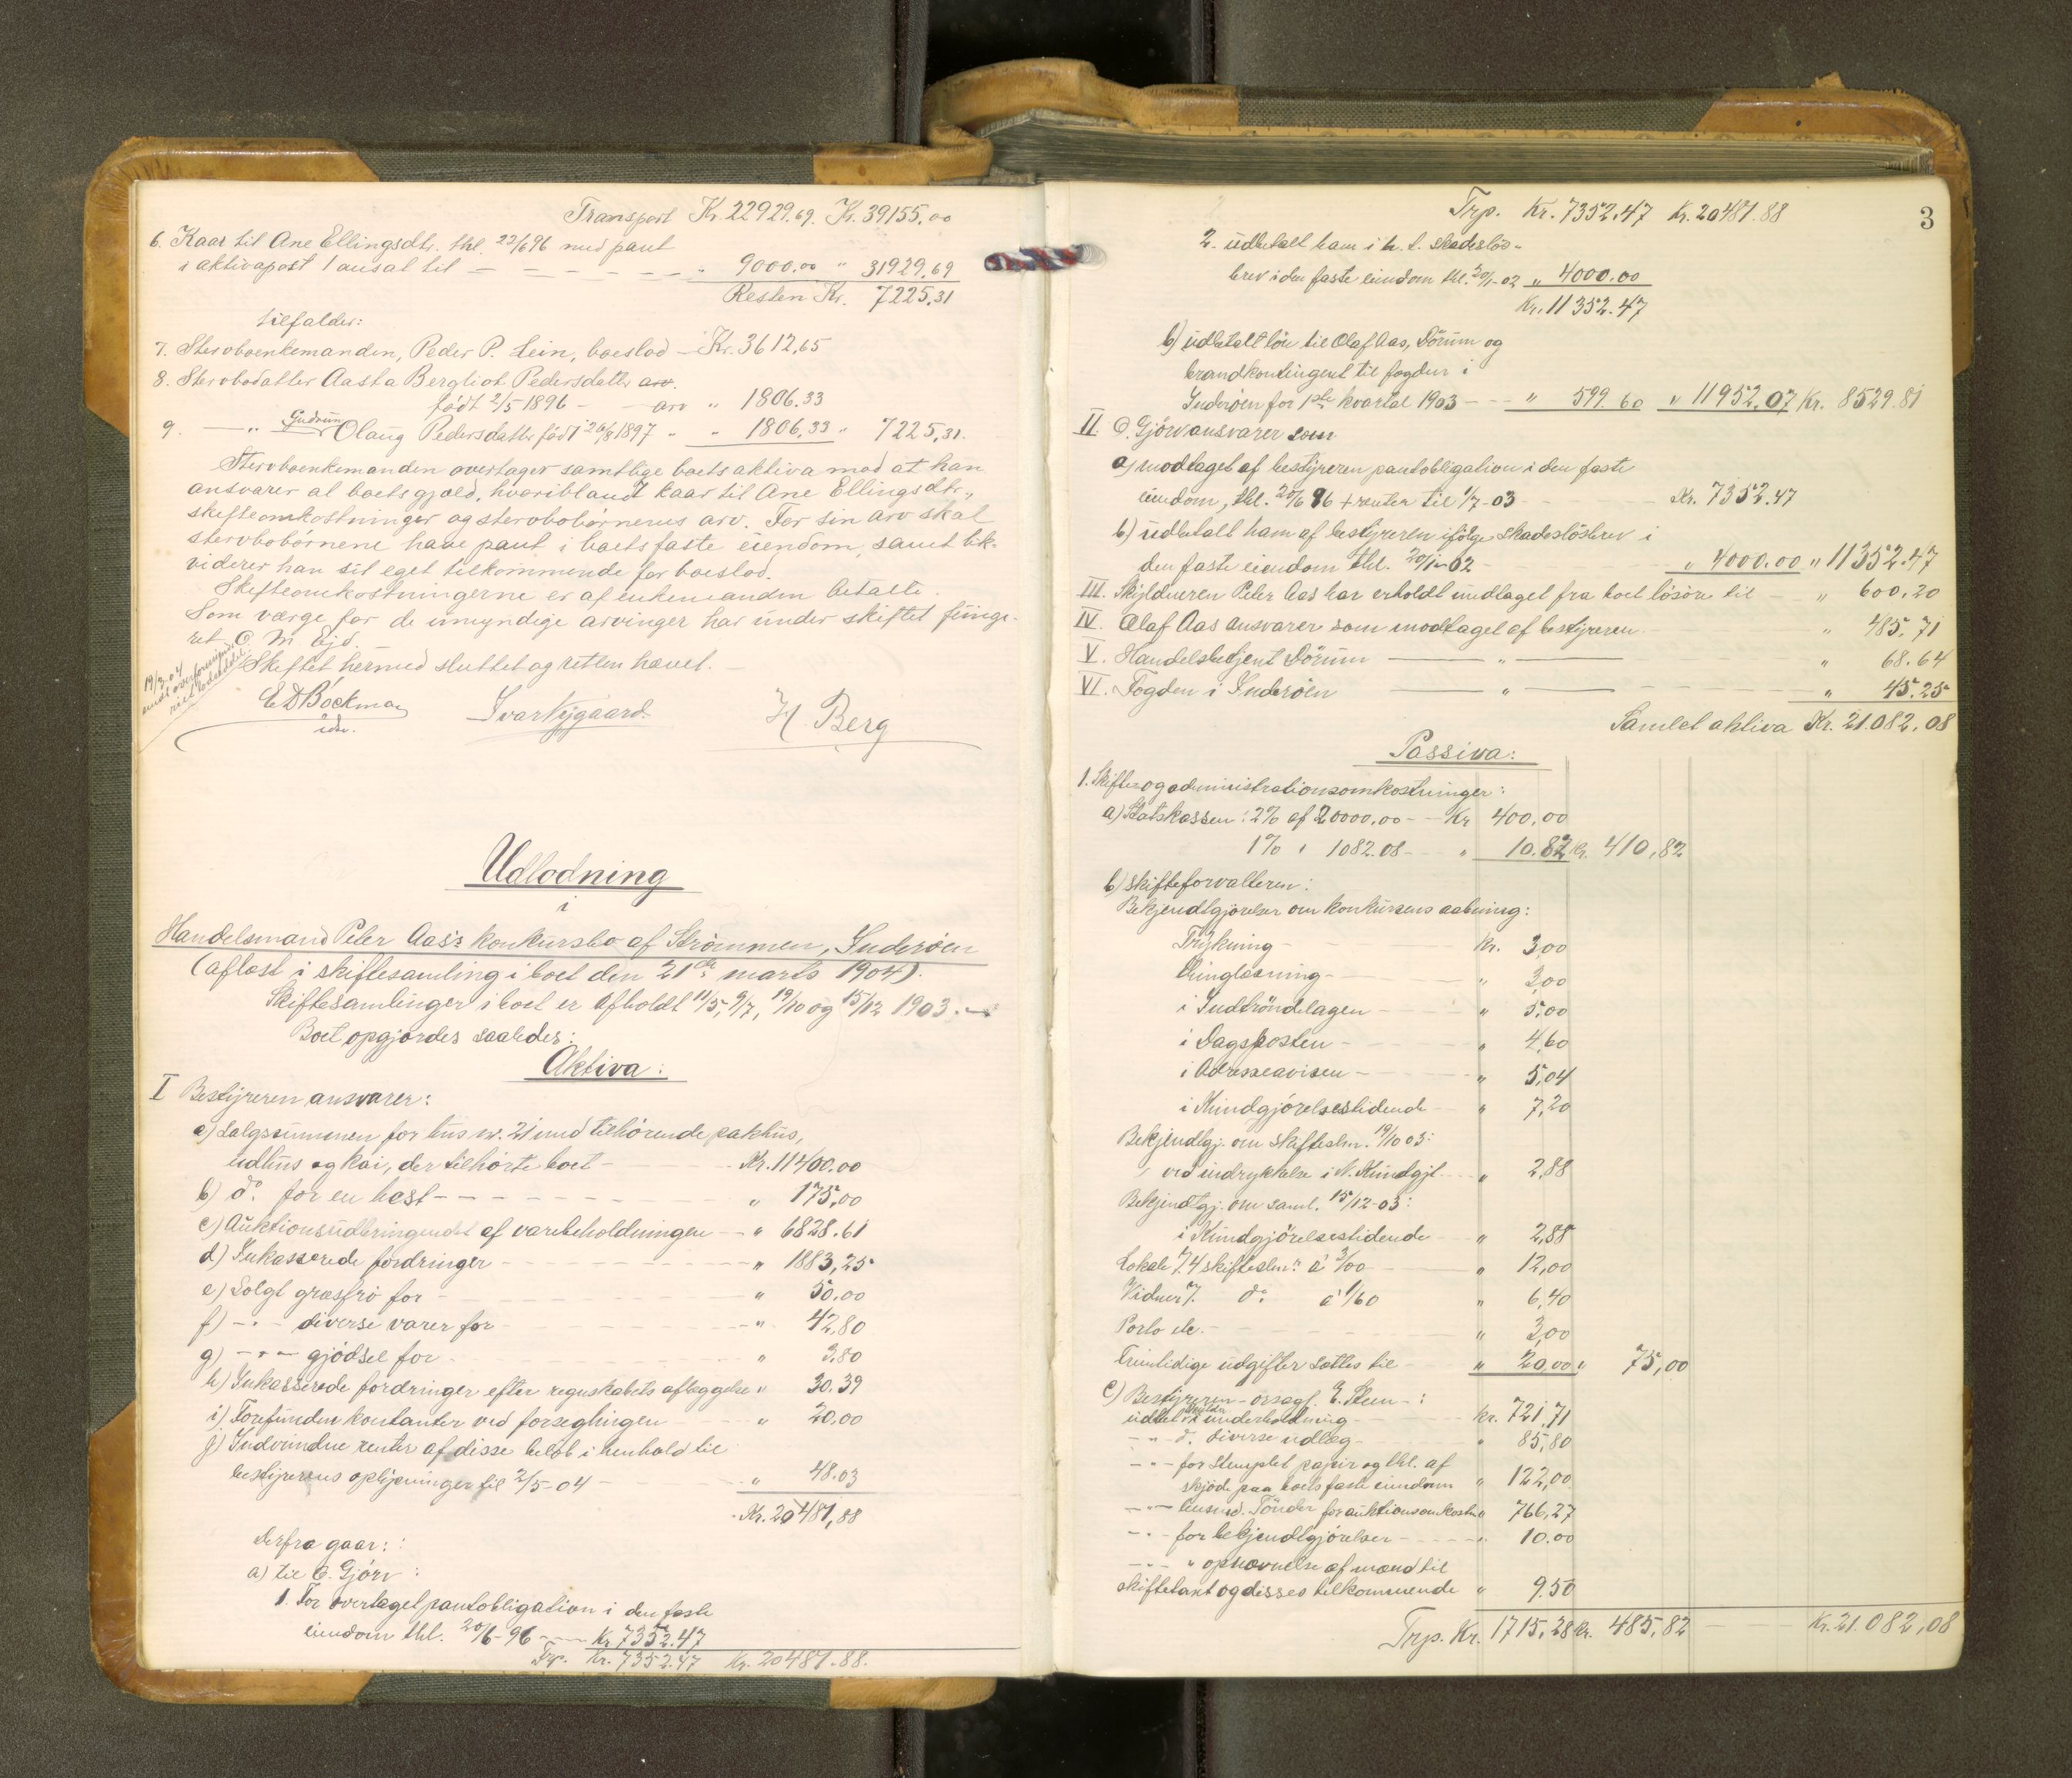 Transport Kr. 22929.69. Kr. 39155.00
6. Kaar til Ane Ellingsdtr. thl. 23/6 96 med pant
i aktivapost 1 ansat til — — — — — — „ 9000.00 „ 31929.69
Resten Kr. 7225,31
tilfalder:
7. Stervboenkemanden, Peder P. Lein, boeslod — Kr. 3612,65
8. Stervbodatter Aasta Bergliot Pedersdatter arv.
født 2/5 1896 — — arv „ 1806.33
9. — „ Gudrun Olaug Pedersdatter født 26/8 1897 „ „ 1806,33 „ 7225,31.
Stervboenkemanden overtager samtlige boets aktiva mod at han
ansvarer al boets gjæld, hvoriblandt kaar til Ane Ellingsdtr.,
skifteomkostninger og stervbobørnenes arv. For sin arv skal
stervbobørnene have pant i boets faste eiendom, samt lik-
viderer han sit eget tilkommende for boeslod.
Skifteomkostningerne er af enkemanden betalt.
Som værge for de umyndige arvinger har under skiftet funge-
ret O. M. Eid.
Skiftet hermed sluttet og retten hævet. —
19/3 04
E D Bockman
Ivar Nygaard.
H. Berg
Udlodning
i
Handelsmand Peter Aas's konkursbo af Strømmen, Inderøen
(aflæst i skiftesamling i boet den 21de marts 1904).
Skiftesamlinger i boet er afholdt 11/5, 9/7, 19/10 og 15/12 1903. —
Boet opgjordes saaledes:
Aktiva:
I Bestyreren ansvarer:
a) Salgssummen for hus nr. 21 med tilhørende pakhus,
udhus og kai, der tilhørte boet — Kr. 11400.00
b) do. for en hest — — — — „ 175,00
c) Auktionsudbringendet af varebeholdningen — „ 6828.61
d) Inkasserede fordringer — — — „ 1883,25
e) Solgt græsfrø for — „ 50.00
f) — „ — diverse varer for — „ 42,80
g) — „ — gjødsel for — „ 3,80
h) Inkasserede fordringer efter regnskabets aflæggelse „ 30.39
i) Forefunden kontanter ved forseglingen — „ 20.00
j) Indvundne renter af disse beløb i henhold til
bestyrerens oplysninger til 2/5-04 — „ 48.03
Kr. 20481,88
Derfra gaar:
a) til O. Gjörv:
1. For overtaget pantobligation i den faste
eiendom thl. 20/6-96 — Kr. 7352.47
Trp. Kr. 7352.47 Kr. 20481.88.
3
Trp. Kr. 7352.47 Kr. 20481.88
2. udbetalt ham i h. t. skadesløs-
brev i den faste eiendom thl. 20/1-02 „ 4000.00
Kr. 11352.47
b) udbetalt løn til Olaf Aas, Dörum og
brandkontingent til fogden i
Inderøen for 1ste kvartal 1903 — — „ 599.60 „ 11952.07 Kr. 8529.81
II. O. Gjörv ansvarer som
a) modtaget af bestyreren pantobligation i den faste
eiendom, thl. 20/6 96 + renter til 1/7-03 — Kr. 7352.47
b) udbetalt ham af bestyreren ifølge skadesløsbrev i
den faste eiendom thl. 20/1-02 — „ 4000.00 „ 11352.47
III. Skyldneren Peter Aas har erholdt undtaget fra boet løsøre til — „ 600.20
IV. Olaf Aas ansvarer som modtaget af bestyreren „ 485,71
V. Handelsbetjent Dörum — „ — „ 68.64
VI. Fogden i Inderøen — „ — „ 45.25
Samlet aktiva Kr. 21.082,08
Passiva:
1. Skifte og administrationsomkostninger:
a) Statskassen: 2% af 20000,00 — Kr. 400,00
1% „ 1082.08 — „ 10.82 Kr. 410,82
b) skifteforvalteren:
Bekjendtgjørelser om konkursens aabning:
Trykning — Kr. 3,00
Thinglæsning — „ 3,00
i Indtröndelagen — „ 5,00
i Dagsposten — „ 4,60
i Adresseavisen — „ 5,04
i Kundgjørelsestidende „ 7,20
Bekjendtgj. om skiftesaml. 19/10 03:
ved indrykkelse i N. Kundgjt. „ 2,88
Bekjendtgj. om saml. 15/12-03:
i Kundgjørelsestidende „ 2,88
Lokale 7. 4 skiftesaml.r á 3/00 — „ 12,00
Vidner 7. do. á 1/60 „ 6,40
Porto etc. — „ 3,00
Fremtidige udgifter sættes til — „ 20,00 „ 75,00
c) Bestyreren — orsagf. E. Steen —:
udbet. underholdning — Kr. 721,71
— „ — d. diverse udlæg — „ 85,80
— „ — for stemplet papir og thl. af
skjøde paa boets faste eiendom „ 122,00
— „ — lensmd. Tönder for auktionsomkostn. „ 766,27
— „ — for bekjendtgjørelser — „ 10.00
— „ — „ opnævnelse af mænd til
skiftetaxt og disses tilkommende „ 9.50
Trp. Kr. 1715,28 Kr. 485,82 — — Kr. 21.082,08